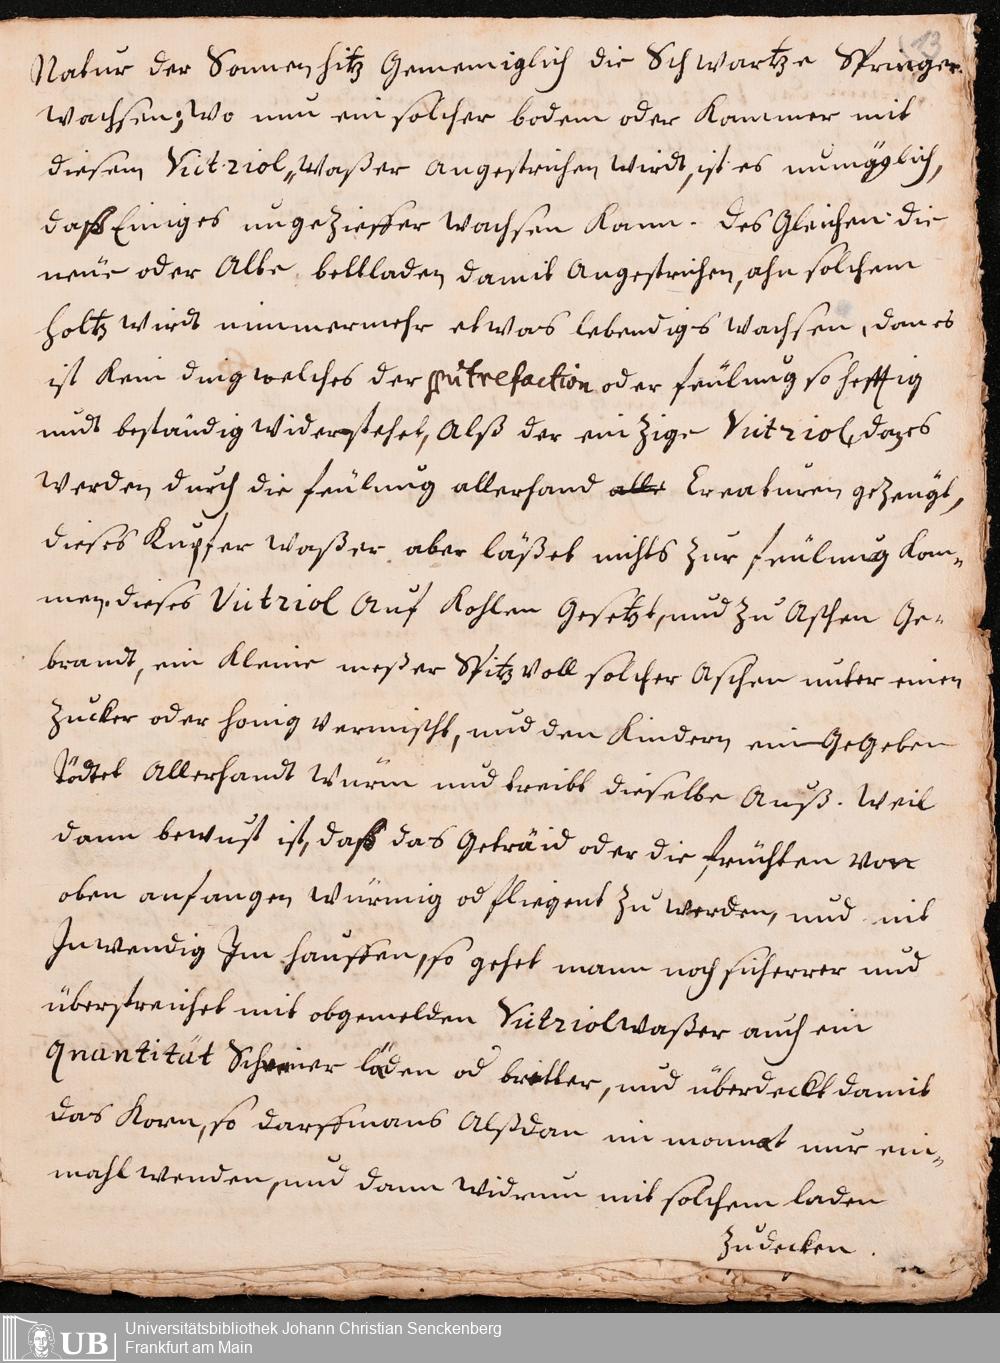 13
Natur der Sonnen hitz Gemeiniglich die Schwartze Springer
wachsen; wo nun ein solcher bodem oder Kammer mit
diesem Victriol„Waßer Angestrichen wirdt, ist es numöglich,
daß Einiges ungeZieffer wachsen Kann. des Gleichen die
neüe oder Alte bettladen damit Angestrichen, ahn solchem
holtz wirdt nimmermehr etwas lebendigs wachsen, dan es
ist Kein ding welches der putrefaction oder feülnug so hefftig
undt beständig widerstehet, Alß der einzige Victriol, dan es
werden durch die feülnug allerhand Creaturen gezeugt,
dieses Kupfer waßer aber läßet nichts zur feülnug Kom„
men. dieses Victriol Auf Kohlen Gesetzt, und Zu Aschen Ge-
brandt, ein Kleine meßer Spitz voll solcher Aschen unter einen
Zucker oder honig vermischt, und den Kindern ein GeGeben
Tödtet Allerhandt Würm und treibt dieselbe Auß. Weil
dann bewust ist, daß das Geträid oder die früchten von
oben anfangen würmig od fliegent Zu werden, und nit
Inwendig Im hauffen, so gehet mann noch sicherrer und
überstreichet mit obgemelden Victriolwaßer auch ein
quantität Schreiner läden od bretter, und überdeckt damit
das Korn, so darffmans Alßdan im monnat nur ein„
mahl wenden, und dann widrum mit solchem laden
Zudecken.
UB
Universitätsbibliothek Johann Christian Senckenberg
Frankfurt am Main